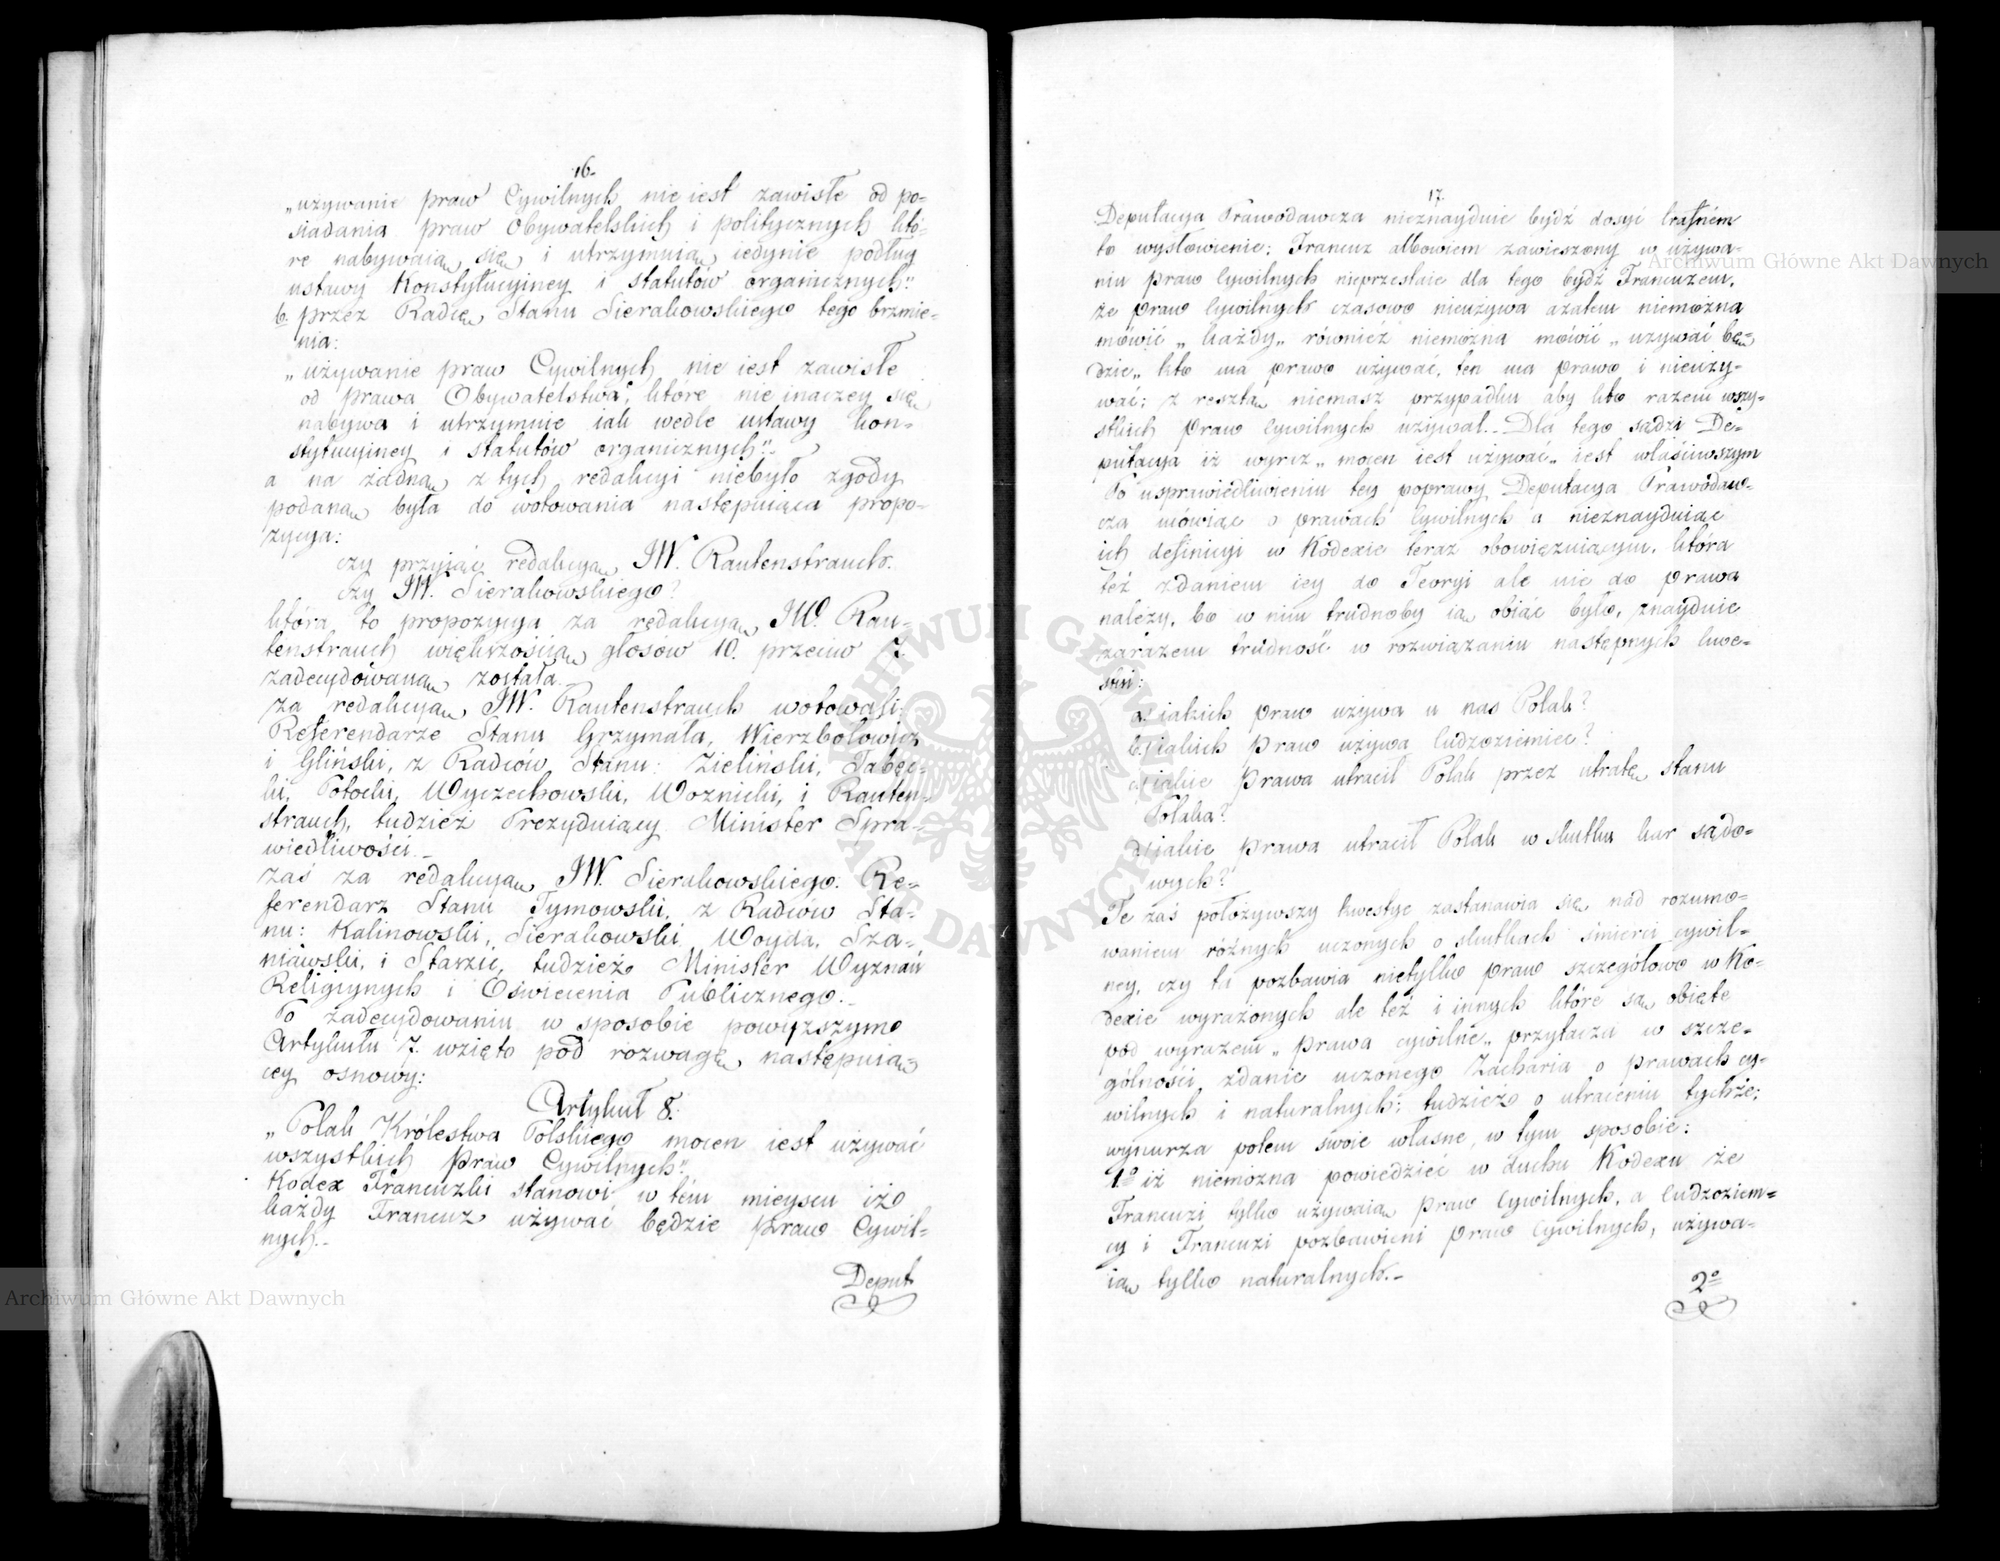 16.
„używanie praw Cywilnych nie iest zawisłe od po-
siadania praw Obywatelskich i politycznych któ-
re nabywaią się i utrzymuią iedynie podług
ustawy Konstytucyiney i statutów organicznych"
b. przez Radcę Stanu Sierakowskiego tego brzmie-
nia:
„używanie praw Cywilnych nie iest zawisłe
od prawa Obywatelstwa, które nie inaczey się
nabywa i utrzymuie iak wedle ustawy kon-
stytucyiney i statutów organicznych".
a na żadną z tych redakcyi niebyło zgody
podaną była do wotowania następuiąca propo-
zycya:
czy przyiąć redakcyą JW. Rautenstrauch.
czy JW. Sierakowskiego?
która to propozycya za redakcyą JW. Rau-
tenstrauch większością głosów 10. przeciw 7.
zadecydowaną została.
za redakcyą JW. Rautenstrauch wotowali:
Referendarze Stanu Grzymała, Wierzbołowicz
i Gliński, z Radców Stanu: Zieliński, Tabęc-
ki, Potocki, Wyczechowski, Woznicki, i Rauten-
strauch, tudzież Prezyduiący Minister Spra-
wiedliwości.
Zaś za redakcyą JW. Sierakowskiego: Re-
ferendarz Stanu Tymowski, z Radców Sta-
nu: Kalinowski, Sierakowski, Woyda, Sza-
niawski, i Staszic, tudzież Minister Wyznań
Religiynych i Oświecenia Publicznego.
Po zadecydowaniu w sposobie powyższym
Artykułu 7. wzięto pod rozwagę następuią-
cey osnowy:
Artykuł 8.
„Polak Królestwa Polskiego mocen iest używać
wszystkich praw Cywilnych".
Kodex Francuzki stanowi w tém mieyscu iż
każdy Francuz używać będzie praw Cywil-
nych.
Deput
17.
Deputacya Prawodawcza nieznayduie bydź dosyć trafném
to wysłowienie; Francuz albowiem zawieszony w używa-
niu praw Cywilnych nieprzestaie dla tego bydź Francuzem,
że praw Cywilnych czasowo nieużywa azatem niemożna
mówić „każdy„ również niemożna mówić „używać bę-
dzie„ kto ma prawo używać, ten ma prawo i nieuży-
wać; z resztą niemasz przypadku aby kto razem wszy-
stkich praw Cywilnych używał. Dla tego sądzi De-
putacya iż wyraz „mocen iest używać„ iest właściwszym
Po usprawiedliwieniu tey poprawy Deputacya Prawodaw-
cza mówiąc o prawach Cywilnych a nieznayduiąc
ich definicyi w Kodexie teraz obowiązuiącym, która
też zdaniem iey do Teoryi ale nie do prawa
należy, bo w nim trudnoby ią obiąć było, znayduie
zarazem trudność w rozwiązaniu następnych kwe-
styi:
a) iakich praw używa u nas Polak?
b) iakich praw używa Cudzoziemiec?
c) iakie prawa utracił Polak przez utratę stanu
Polaka?
d) iakie prawa utracił Polak w skutku kar sądo-
wych?
Te zaś położywszy kwestye zastanawia się nad rozumo-
waniem różnych uczonych o skutkach śmierci cywil-
ney, czy ta pozbawia nietylko praw szczegółowo w Ko-
dexie wyrażonych ale też i innych które są obięte
pod wyrazem „prawa cywilne„ przytacza w szcze-
gólności zdanie uczonego Zacharia o prawach cy-
wilnych i naturalnych; tudzież o utraceniu tychże;
wynurza potem swoie własne, w tym sposobie:
1o iż niemożna powiedzieć w duchu Kodexu że
Francuzi tylko używaią praw Cywilnych, a Cudzoziem-
cy i Francuzi pozbawieni praw Cywilnych, używa-
ią tylko naturalnych.-
2o
Archiwum Główne Akt Dawnych
Archiwum Główne Akt Dawnych
ARCHIWUM GŁÓWNE AKT DAWNYCH